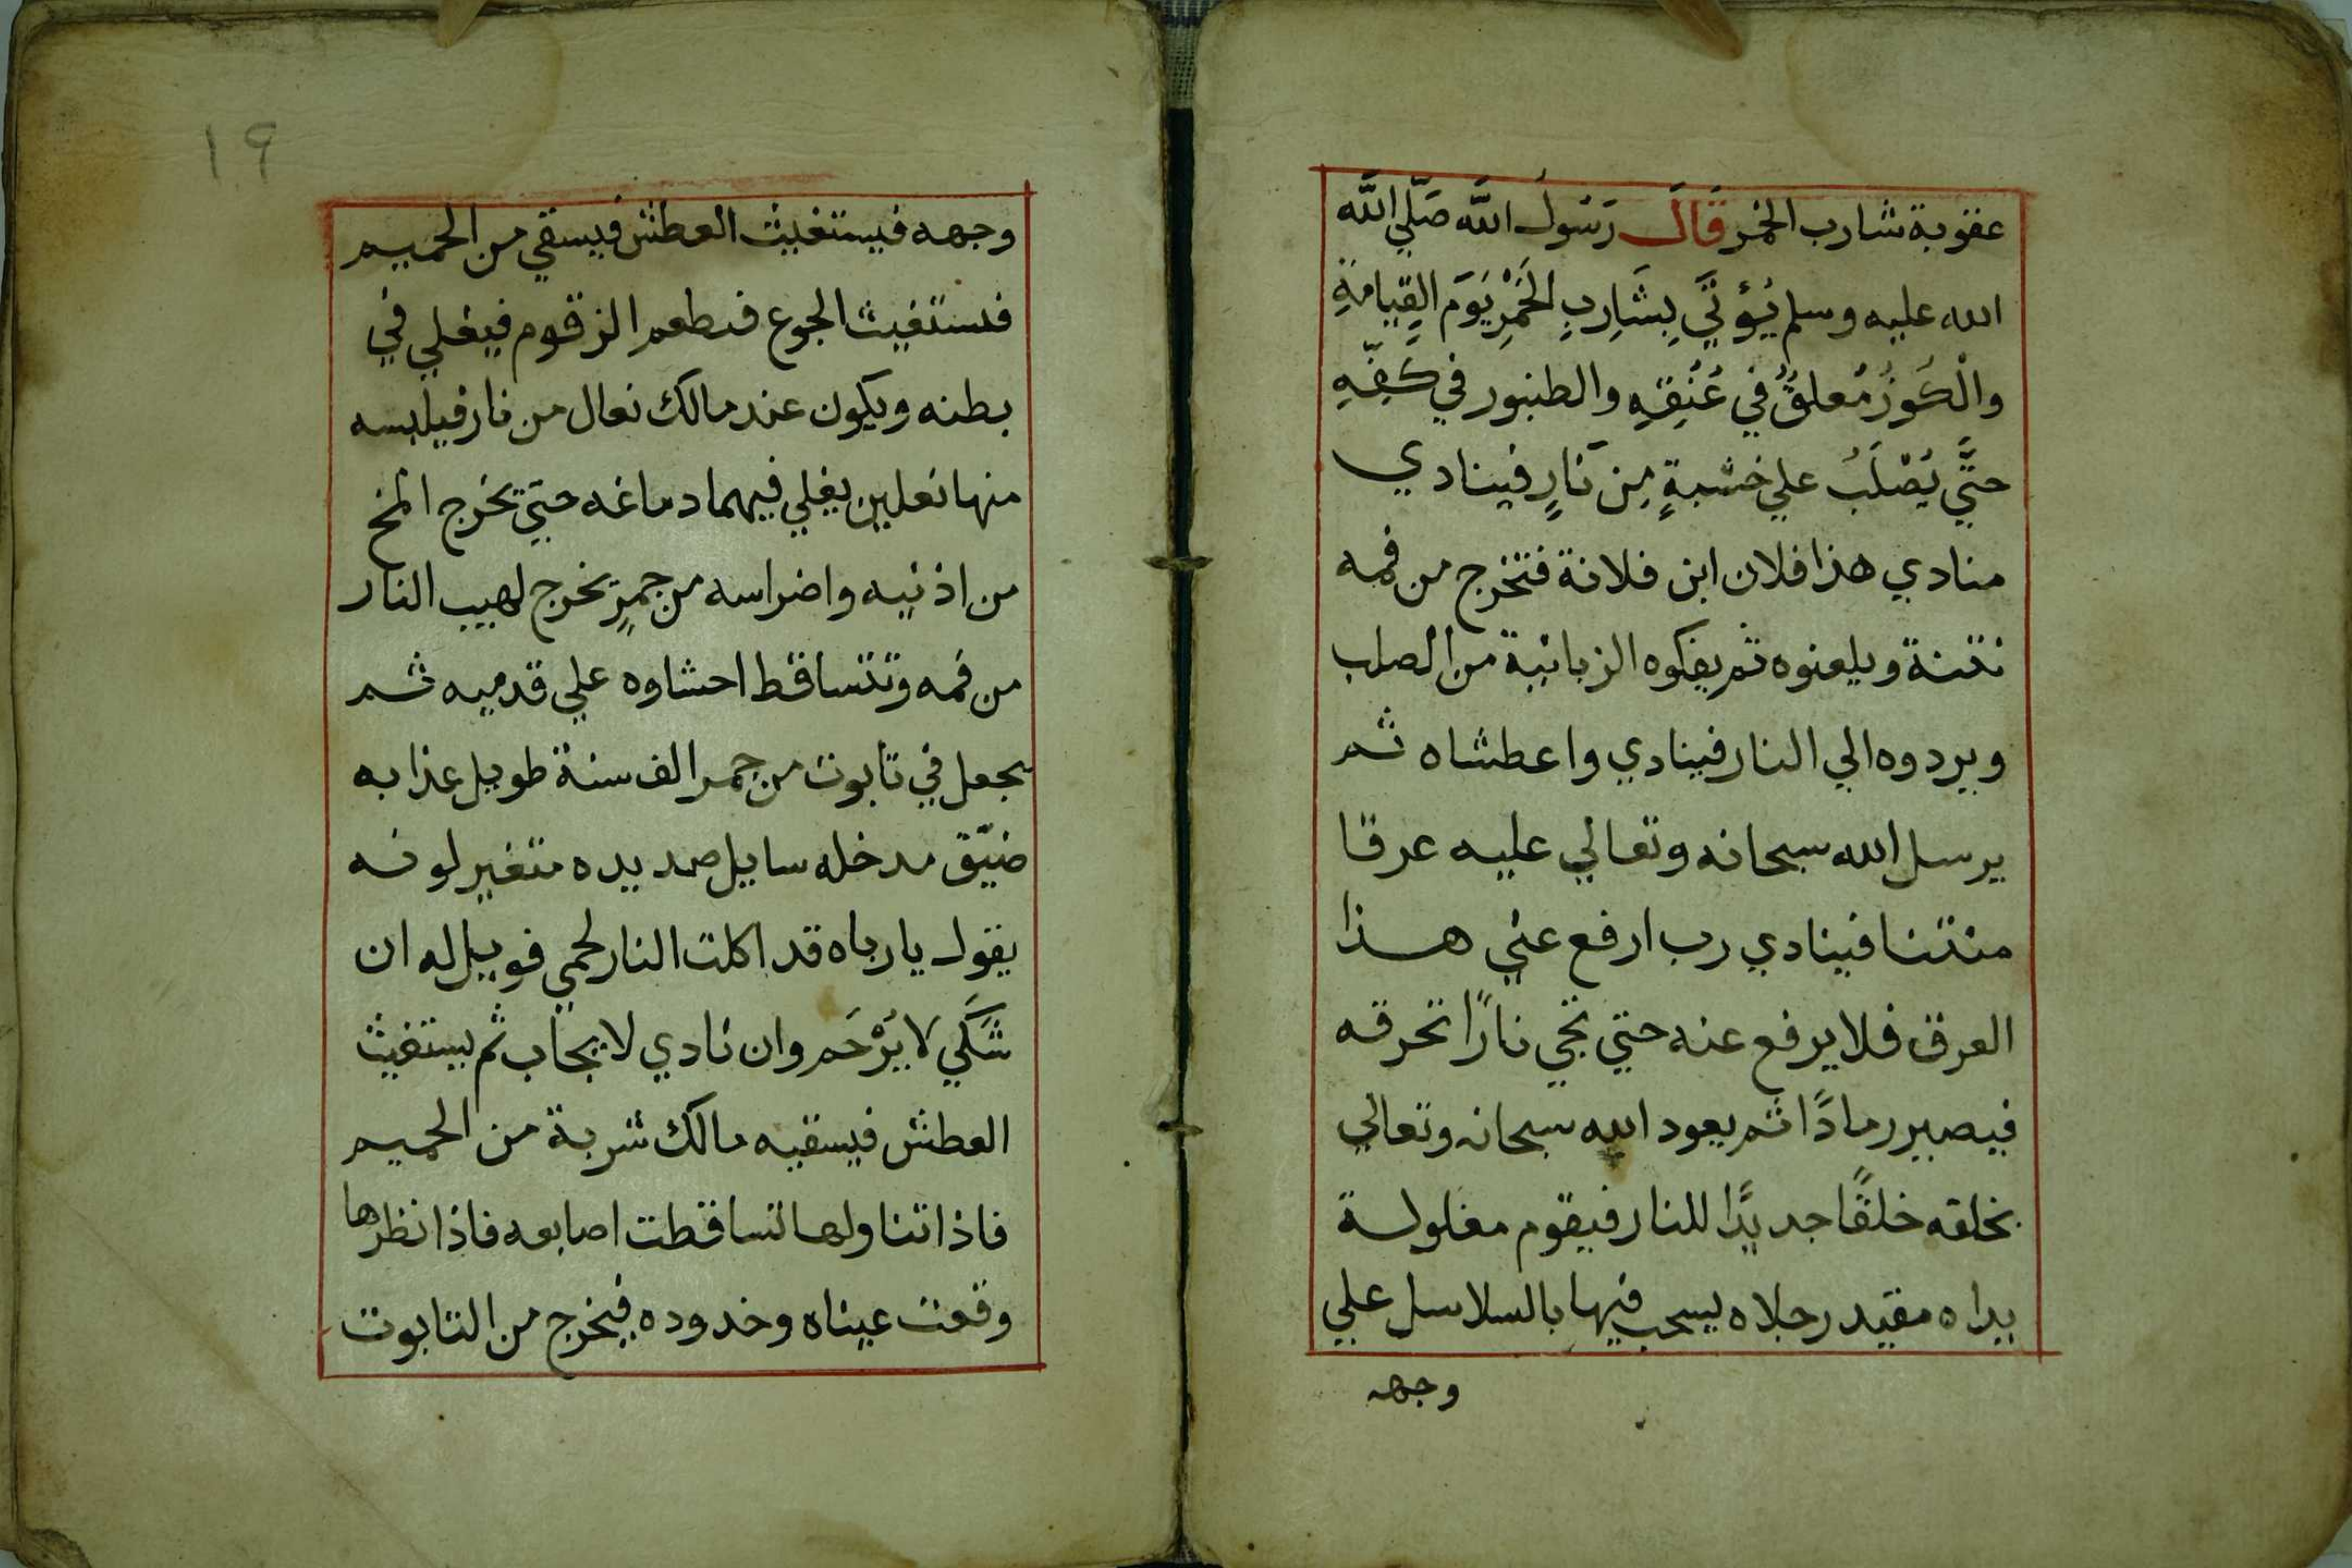 عقوبة شارب الخمر قَالَ رَسُولُ اللَّه صَلّي اللَّه
الله عليه وسلم يُؤتَيَّ بِشَارِبِ الخَمْرِ يَوَم القِيامَةِ
والْكُوزُ مُعلقٌ في عُنُقِهِ والطنبور في كَفِّهِ
حتَّي يُصْلَبُ علي خشبةٍ مِن نَارٍ فينادي
منادي هذا فلان ابن فلانة فتخرج من فمه
نتنة ويلعنوه ثم يفكوه الزبانية من الصلب
ويردوه الي النار فينادي واعطشاه ثم
يرسل الله سبحانه وتعالي عليه عرقا
منتنا فينادي رب ارفع عني هذا
العرق فلا يرفع عنه حتي تجي نارًا تحرقه
فيصير رمادًا ثم يعود الله سبحانه وتعالي
بخلقه خلقًا جديدًا للنار فيقوم مغلولة
يداه مقيد رجلاه يسحب فيها بالسلاسل علي
وجهه
١٩
وجهه فيستغيث العطش فيسقي من الحميم
فستغيث الجوع فىطعم الزقوم فيغلي في
بطنه ويكون عند مالك نعال من نار فيلبسه
منها نعلين يغلي فيهما دماغه حتي تخرج المخ
من اذنيه واضراسه من جمرٍ تخرج لهيب النار
من فمه وتتساقط احشاوه علي قدميه ثم
يجعل في تابوت من جمر الف سنة طويل عذابه
ضيّق مدخله سايل صديده متغير لونه
يقول يا رباه قد اكلت النار لحمي فويل له ان
شَكَي لا يَرْحَم وان نادي لا يجاب ثم يستغيث
العطش فيسقيه مالك شربة من الحميم
فاذا تناولها تساقطت اصابعه فاذا نظرها
وقعت عيناه وخدوده فيخرج من التابوت